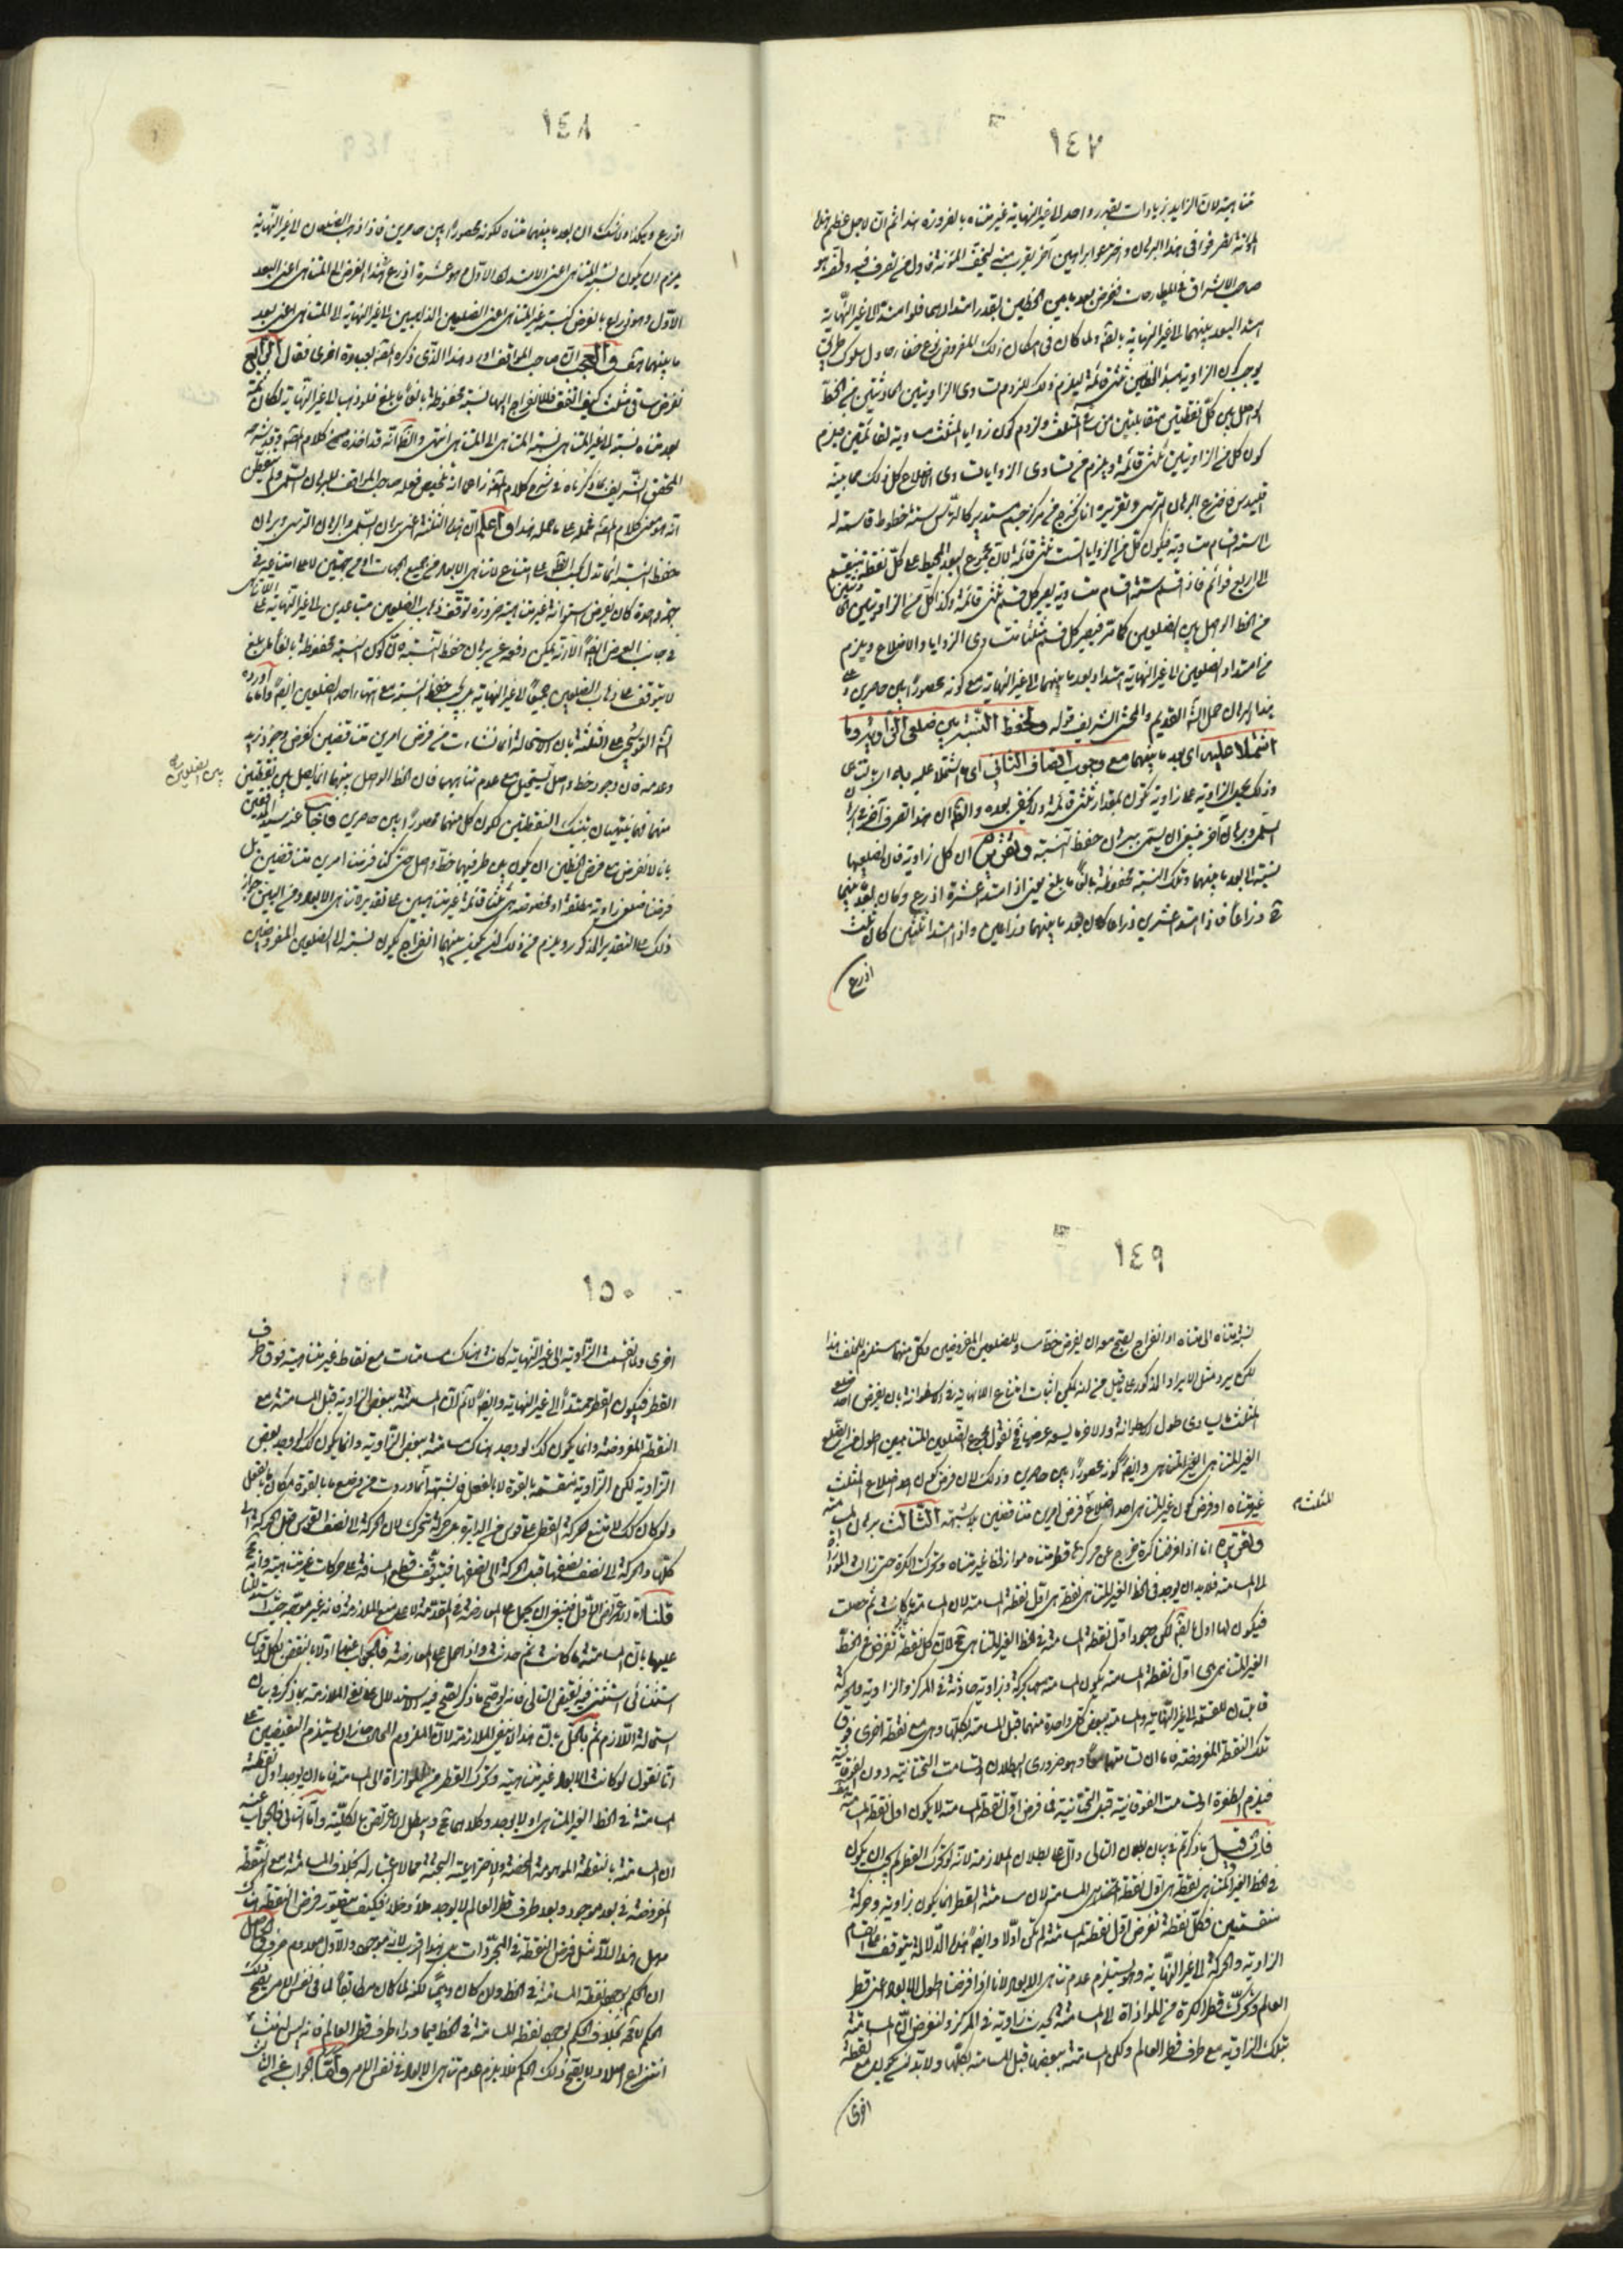 ١٤٧
متناهية لان الزايد بزيادات بقدر واحد الى غير النهاية غير متناه بالضرورة هذا ثم ان لاجل عظم
المؤنة تصرفوا في هذا البرهان واخترعوا براهين آخر يقرب منه لتخفيف المؤنة فاول من تصرف فيه
صاحب الاشراق في المطارحات ففرض بعد ما بين الخطين بقدر امتدادهما فلو امتدا الى غير النهاية
امتد البعد بينهما الى غير النهاية ولما كان في امكان ذلك المفروض نوع خفاء حاول سلوك طريق
يوجب كون الزاوية مبدأ الخطين ثلثي قائمة ليلزم من ذلك لزوم تساوي الزاويتين الحادثتين من الخط
الواصل بين كل نقطتين متقابلتين من المثلث ولزوم كون زوايا المثلث مساوية لقائمتين فيلزم
كون كل من الزاويتين ثلثي قائمة ويلزم من تساوي الزوايا تساوي الاضلاع كل ذلك مما بينه
اقليدس فاخترع البرهان الترسي وتقريره انا نخرج من مركز جسم مستدير كالترس ستة خطوط قاسمة له
ستة اقسام متساوية فيكون كل من الزوايا الست ثلثي قائمة لان مجموع المحيط على كل نقطة ينقسم
الى اربع قوائم فاذا قسم ستة اقسام متساوية يصير كل قسم ثلثي قائمة وكذا كل من الزاويتين
من الخط الواصل بين الضلعين كما مر فيصير كل قسم مثلثا متساوي الزوايا والاضلاع ويلزم
من امتداد الضلعين الى غير النهاية امتداد بعد ما بينهما الى غير النهاية مع كونه محصورا بين حاصرين
هذا البرهان حمل الشارح القديم والمحشي الشريف قوله ولحفظ النسبة بين ضلعي الزاوية وما
اشتملا عليه اي بعد ما بينهما مع وجوب اتصاف الثاني اي ما اشتملا عليه
وذلك الزاوية على زاوية تكون بمقدار ثلثي قائمة ولا يخفى بعده والظ ان هذا تصرف آخر في البرهان
السلمي وبرهان آخر ينبغي ان يسمى ببرهان حفظ النسبة وتقريره ان كل زاوية فان لضلعيها
نسبة الى بعد ما بينهما وتلك النسبة محفوظة بالغا ما بلغ يعني اذا امتدا عشرة اذرع وكان بعد ما بينهما
ذراعا فاذا امتدا عشرين ذراعا كان بعد ما بينهما ذراعين واذا امتدا ثلثين كان ثلث
اذرع
١٤٨
اذرع وهكذا ولا شك ان بعد ما بينهما متناه لكونه محصورا بين حاصرين فاذا ذهب الضلعان الى غير النهاية
يلزم ان يكون نسبة المتناهي اعني الامتداد الاول وهو عشرة اذرع الى المتناهي اعني البعد
الاول وهو ذراع بالفرض كنسبة غير المتناهي اعني الضلعين الذاهبين الى غير النهاية الى المتناهي اعني بعد
ما بينهما هف والعجب ان صاحب المواقف اورد هذا الذي ذكره المص بعبارة اخرى فقال الرابع
نفرض ساقي مثلث كيف اتفق فللانفراج اليهما نسبة محفوظة بالغا ما بلغ فلو ذهبا الى غير النهاية لكان ثمة
بعد متناه نسبته الى غير المتناهي نسبة المتناهي الى المتناهي انتهى والظ انه قد اخذه من كلام المص وقد شرحه
المحقق الشريف بما ذكرناه في شرح كلام المص زاعما انه تلخيص فعله صاحب المواقف للبرهان السلمي ولم يتفطن
انه هو معنى كلام المص فحمله على ما حمله هذا واعلم ان هذه الثلثة اعني برهان السلمي والبرهان الترسي وبرهان
حفظ النسبة انما تدل بحسب الظ على امتناع لا تناهي الابعاد من جميع الجهات او من جهتين لا على امتناعه في
جهة واحدة كان يفرض اسطوانة غير متناهية ضرورة توقفه ذهاب الضلعين متباعدين الى غير النهاية على اللاتناهي
في جانب العرض ايضا الا انه يمكن دفعه عن برهان حفظ النسبة بان كون النسبة محفوظة بالغا ما بلغ
لا يتوقف على ذهاب الضلعين جميعا الى غير النهاية بل يجب حفظ النسبة مع انتهاء احد الضلعين ايضا واما ما اورده
الش القوشجي على الثلثة بان الاستحالة انما نشأت من فرض امرين متناقضين كفرض وجود زيد
وعدمه فان وجود خط واصل يستحيل مع عدم تناهيهما فان الخط الواصل بينهما انما يصل بين نقطتين
منهما فهما ينتهيان بتينك النقطتين لكون كل منهما محصورا بين حاصرين فاجاب عنه سيد المدققين
بانا لا نفرض مع فرض الخطين ان يكون بين طرفيهما خط واصل حتى كنا فرضنا امرين متناقضين بل
فرضنا ضلعي زاوية مطلقة او مخصوصة هي ثلثا قائمة غير متناهيين على تقدير لا تناهي الابعاد ومن البين جواز
ذلك على التقدير المذكور ويلزم من ذلك ان يحصل بينهما انفراج يكون نسبته الى الضلعين المفروضين
بين الضلعين
١٤٩
نسبة متناه الى متناه او انفراج يصح معه ان يفرض خط مساو للضلعين المفروضين وكل منهما مستلزم للخلف هذا
لكن يرد مثل الايراد المذكور على ما قيل من انه يمكن اثبات امتناع اللانهاية في الاسطوانة بان يفرض احد ضلع
المثلث ما يساوي طول الاسطوانة والآخر ما يسعه عرضها فح نقول مجموع الضلعين المتناهيين اطول من الضلع
الغير المتناهي وايضا كونه محصورا بين حاصرين وذلك لان فرض كون احد اضلاع المثلث
غير متناه او فرض كون غير المتناهي احد اضلاع فرض امرين متناقضين بلا شبهة الثالث برهان المسامتة
وتقريره انا اذا فرضنا كرة خرج عن مركزها قطر متناه مواز لخط غير متناه وتحركت الكرة حتى زالت الموازاة
الى المسامتة فلابد ان يوجد في الخط الغير المتناهي نقطة هي اول نقطة المسامتة لان المسامتة ما كانت ثم حصلت
فيكون لها اول بالضرورة لكن وجود اول نقطة المسامتة في الخط الغير المتناهي مح لان كل نقطة تفرض في الخط
الغير المتناهي هي اول نقطة المسامتة يكون المسامتة معها بحركة وزاوية حادثة في المركز والزاوية والحركة
قابلتان للقسمة الى غير النهاية والمسامتة ببعض كل واحدة منهما قبل المسامتة بكلها وهي مع نقطة اخرى فوق
تلك النقطة المفروضة فاما ان تسامتهما معا وهو ضروري البطلان او تسامت التحتانية دون الفوقانية
فيلزم الطفرة او تسامت الفوقانية قبل التحتانية فما فرض اول نقطة المسامتة لا يكون اول نقطة المسامتة
فان قيل ما ذكرتم في بيان بطلان التالي دال على بطلان الملازمة لانه لو تحرك القطر لم يجب ان يكون
في الخط الغير المتناهي نقطة هي اول نقطة المسامتة لان مسامتة القطر انما يكون بزاوية وحركة
منقسمتين فكل نقطة تفرض اول نقطة المسامتة لم تكن اولا وايضا هذه الدلالة يتوقف على انقسام
الزاوية والحركة الى غير النهاية وهو يستلزم عدم تناهي الابعاد لانا اذا فرضنا اطول الابعاد اعني قطر
العالم وتحرك قطر الكرة من الموازاة الى المسامتة يحدث زاوية في المركز ولنفرض ان المسامتة
بتلك الزاوية مع طرف قطر العالم ولكن المسامتة ببعضها قبل المسامتة بكلها ولابد ان يكون مع نقطة
اخرى
المثلث
١٥٠
اخرى ولما انقسمت الزاوية الى غير النهاية كانت هناك مسامتات مع نقاط غير متناهية فوق طرف
القطر فيكون القطر ممتدا الى غير النهاية وايضا لا نم ان المسامتة ببعض الزاوية قبل المسامتة مع
النقطة المفروضة وانما يكون كك لو وجد هناك مسامتة ببعض الزاوية وانما يكون كك لو وجد بعض
الزاوية لكن الزاوية منقسمة بالقوة لا بالفعل والشبهة انما وردت من وضع ما بالقوة مكان ما بالفعل
ولو كان كك لامتنع حركة القطر على قوس من الدايرة بل حركة متحرك لان الحركة الى نصف القوس قبل الحركة الى
كلها والحركة الى نصف نصفها قبل الحركة الى نصفها فيتوقف قطع المسافة على حركات غير متناهية وانه مح
قلنا الاعتراض الاول فينبغي ان يحمل على المعارضة في المقدمة لا على منع الملازمة فانه غير موجه حيث استدللنا
عليها بان المسامتة ما كانت ثم حدثت واذا حمل على المعارضة فالجواب عنها اولا بالنقض بكل قياس
استثنائي استثني فيه نقيض التالي فانه لو صح ما ذكر لصح فيه الاستدلال على نفي الملازمة بما ذكر في بيان
استحالة اللازم ثم بالحل بان هذا لا ينفي الملازمة لان الملزوم المحال جاز ان يستلزم النقيضين على
انا نقول لو كانت الابعاد غير متناهية وتحرك القطر من الموازاة الى المسامتة فاما ان يوجد اول نقطة
المسامتة في الخط الغير المتناهي او لا يوجد وكلاهما مح ويبطل الاعتراض بالكلية واما الثاني فالجواب عنه
ان المسامتة بالنقطة الموهومة المحضة والاختراعية البحتة مما لا اعتبار له بخلاف المسامتة مع النقطة
المفروضة في بعد موجود وبعد طرف قطر العالم لا يوجد ملأ وخلأ فكيف يتصور فرض النقطة هناك
وهل هذا الا مثل فرض النقطة في المجردات بل هذا اقرب لانه موجود والاول معدوم صرف والحاصل
ان الحكم بوجود نقطة المسامتة في الخط وان كان وهميا لكنه لما كان مطابقا لما في نفس الامر يصح ذلك
الحكم لا مح بخلاف الحكم بوجود نقطة المسامتة في الخط فيما وراء طرف قطر العالم فانه ليس له منشأ
انتزاع اصلا ولا يصح ذلك الحكم فلا يلزم عدم تناهي الابعاد في نفس الامر واما الجواب عن الثالث